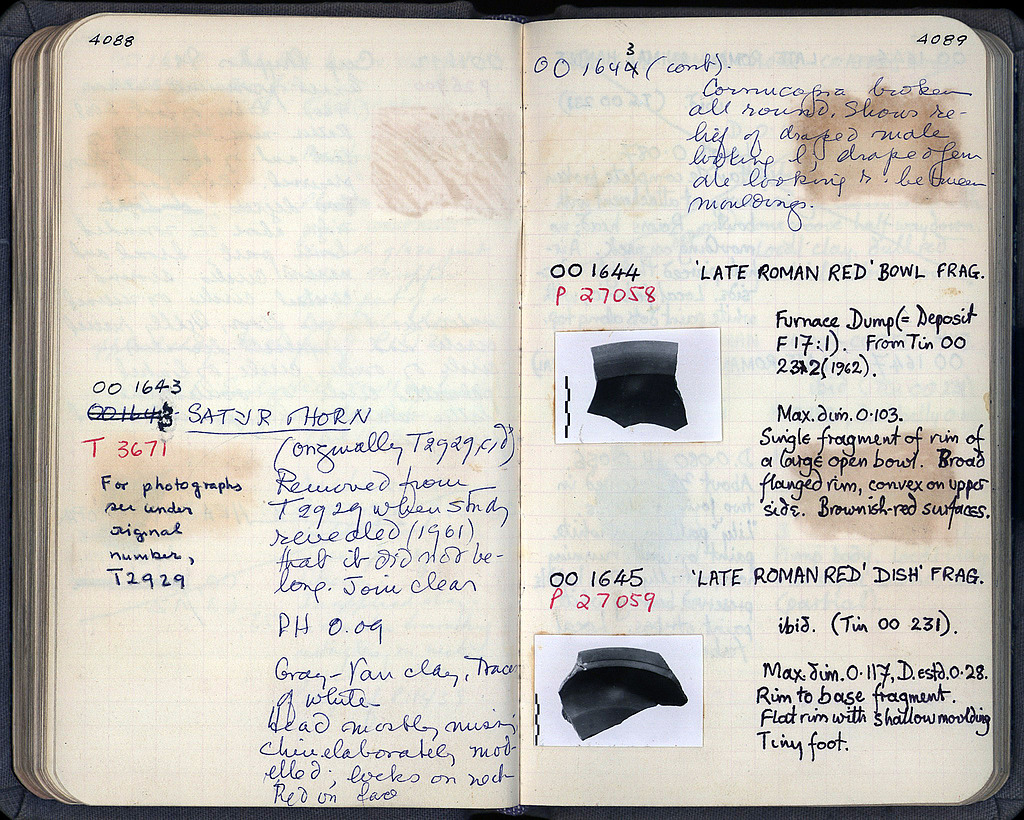 4088
OO 1643
SATYR + HORN
T 3671
(originally T2929,c,d)
For photographs
see under
original
number,
T2929
Removed from
T2929 when study
revealed (1961)
that it did not be-
long. Join clear
PH 0.09
Gray-tan clay, Traces
of white
Head mostly missing
Chin elaborately mod-
elled; locks on neck
Red on face
4089
OO 1643 (cont).
Cornucopia broken
all round. Shows re-
lief of draped male
looking l, draped fem
ale looking r between
mouldings.
OO 1644 'LATE ROMAN RED' BOWL FRAG.
P 27058
Furnace Dump (= Deposit
F 17:1). From Tin OO
232 (1962).
Max. dim. 0·103.
Single fragment of rim of
a large open bowl. Broad
flanged rim, convex on upper
side. Brownish-red surfaces.
OO 1645 'LATE ROMAN RED' DISH' FRAG.
P 27059
ibid. (Tin OO 231).
Max. dim. 0·117, D. estd. 0·28.
Rim to base fragment.
Flat rim with shallow moulding
Tiny foot.